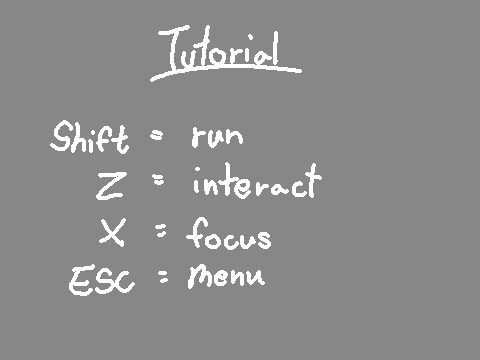 Tutorial
Shift = run
Z = interact
X = focus
ESC = menu